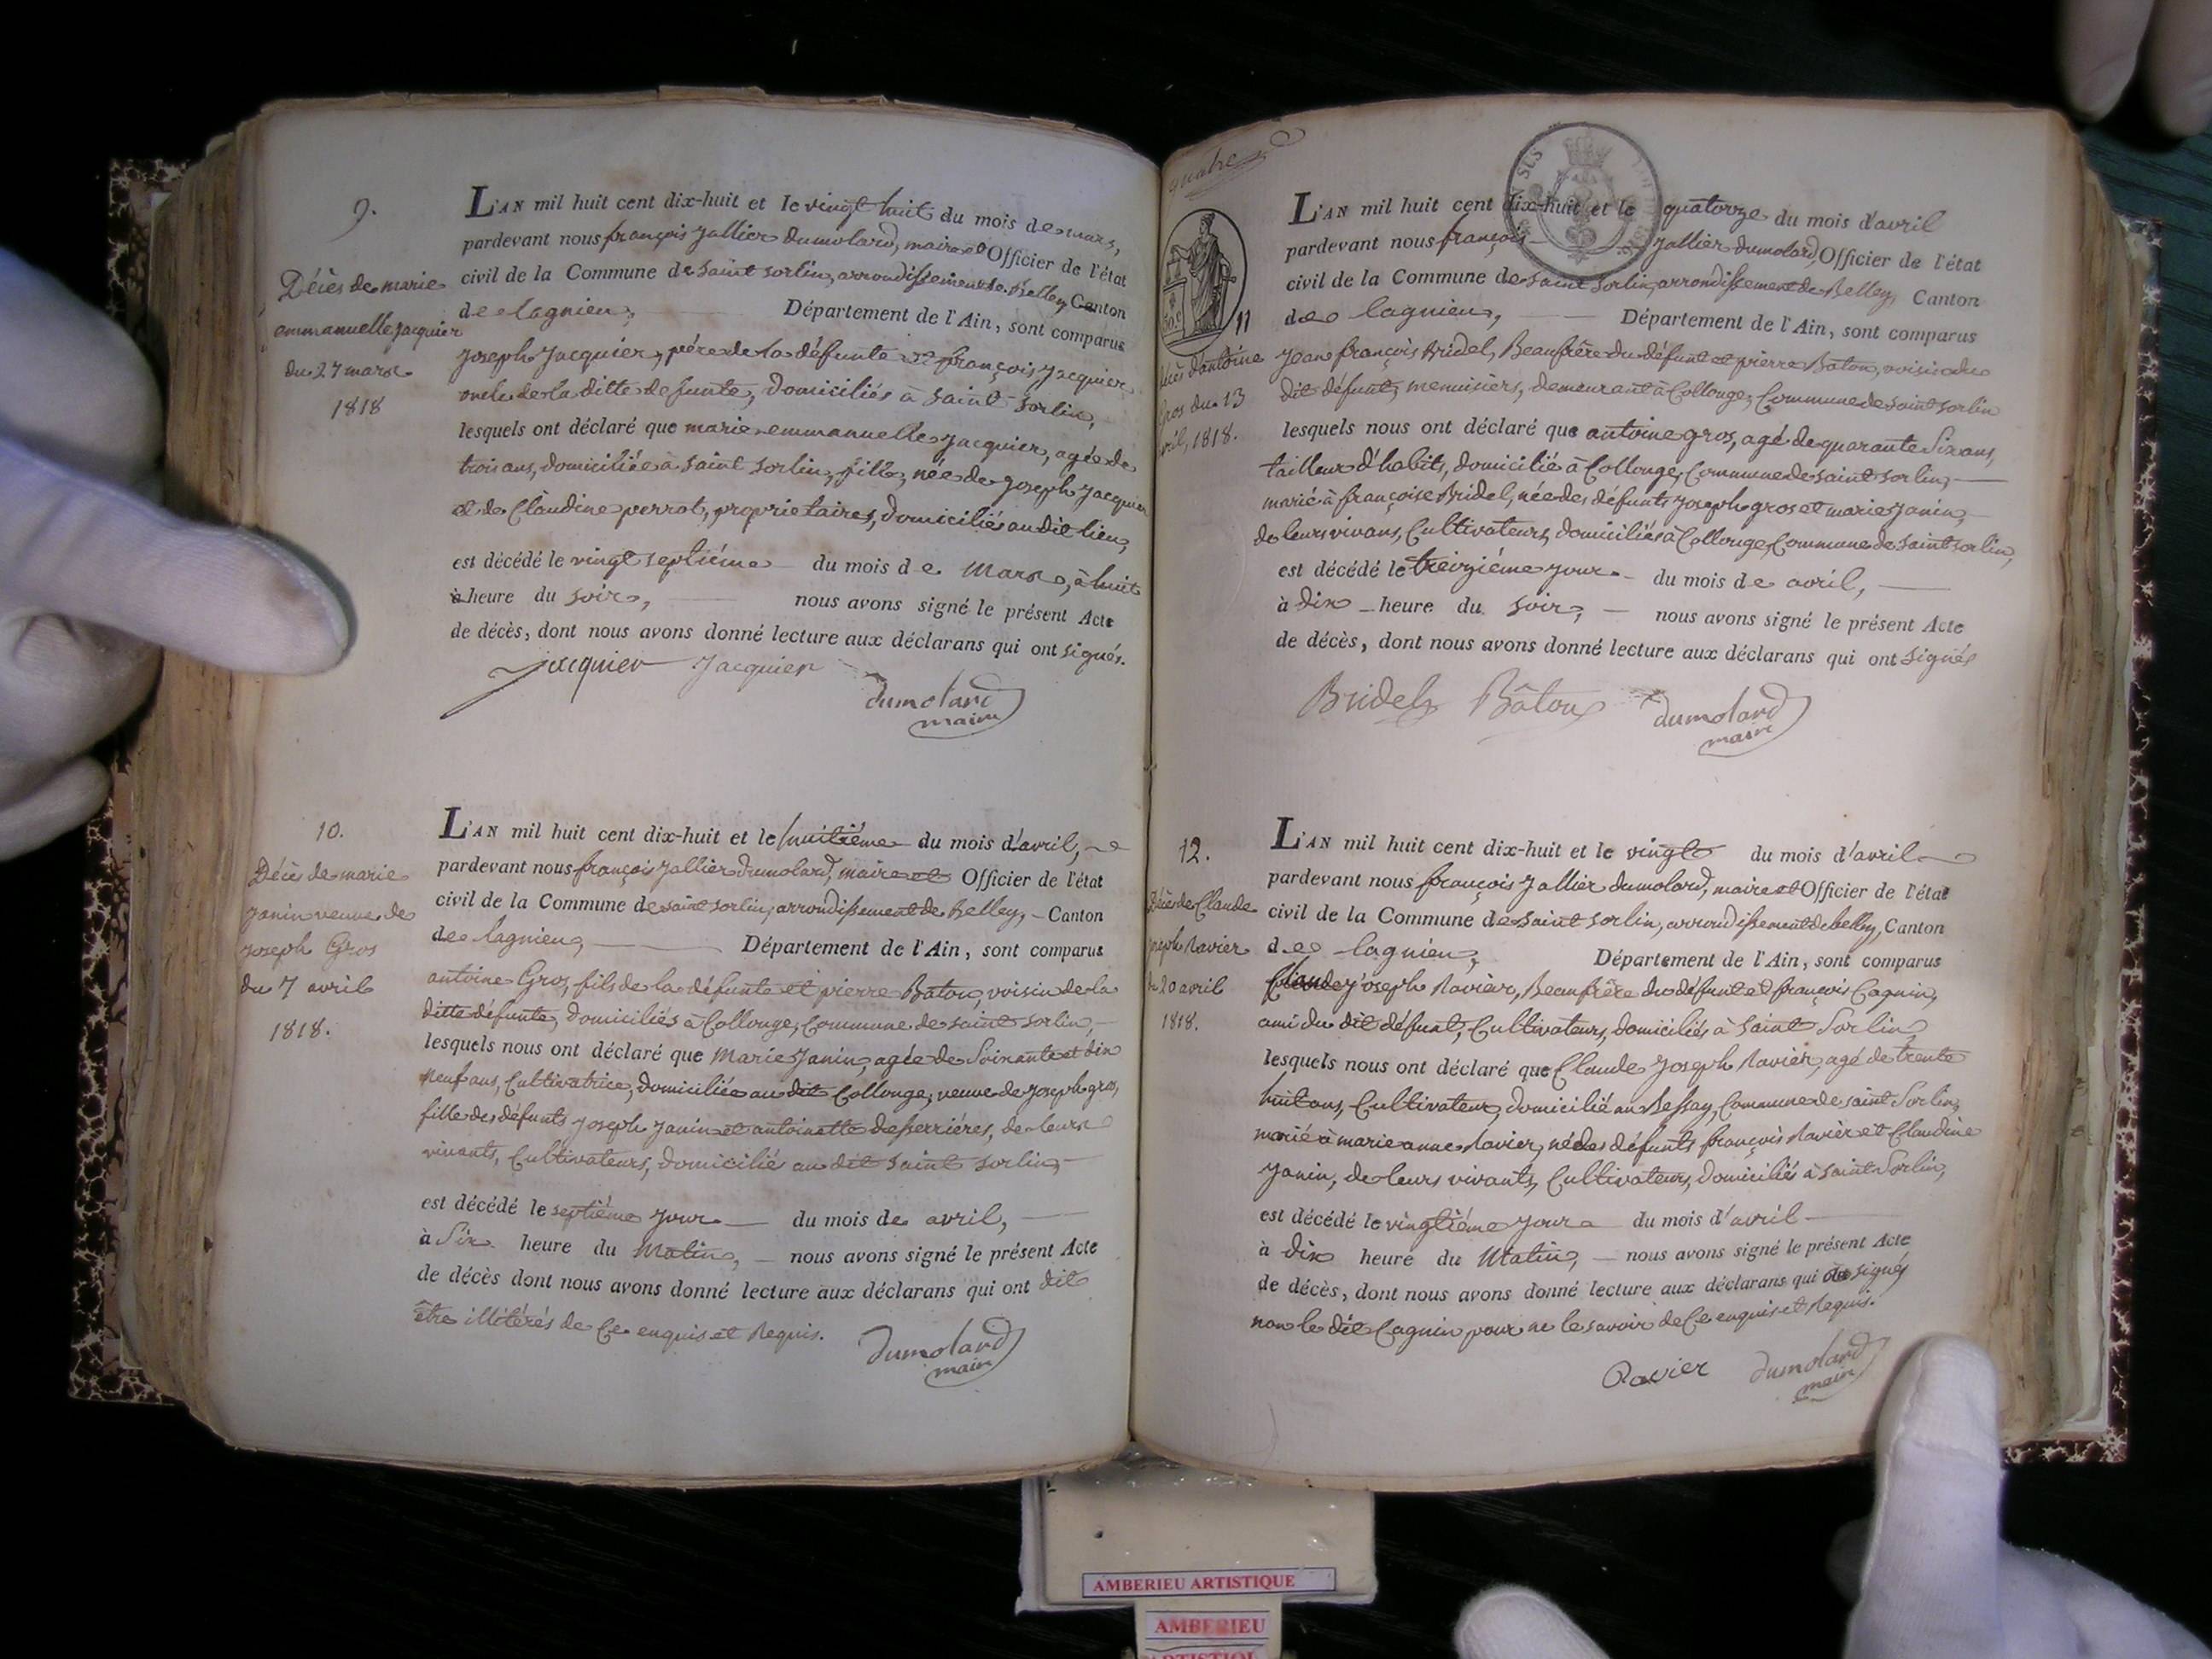 9.
Décès de marie
emmanuelle jacquier
du 27 mars
1818
L'AN mil huit cent dix-huit et le vingt huit du mois de mars,
pardevant nous françois jallier dumolard, maire et Officier de l'état
civil de la Commune de saint sorlin, arrondissement de Belley, Canton
de lagnieu, Département de l'Ain, sont comparus
joseph jacquier, père de la défunte et françois jacquier
oncle de la ditte defunte, domiciliés à saint sorlin,
lesquels ont déclaré que marie emmanuelle jacquier, agée de
trois ans, domiciliée à saint sorlin, fille, née de joseph jacquier
et de Claudine perrot, proprietaires, domiciliés au dit lieu,
est décédé le vingt septiéme du mois de mars, à huit
à heure du soir, nous avons signé le présent Acte
de décès, dont nous avons donné lecture aux déclarans qui ont signés.
jacquier jacquier dumolard
maire
10.
Décès de marie
janin veuve de
joseph Gros
du 7 avril
1818.
L'AN mil huit cent dix-huit et le huitiéme du mois d'avril,
pardevant nous françois jallier dumolard, maire et Officier de l'état
civil de la Commune de saint sorlin, arrondissement de Belley, Canton
de lagnieu, Département de l'Ain, sont comparus
antoine Gros, fils de la défunte et pierre Baton, voisin de la
ditte défunte, domiciliés à Collonge, Commune de saint sorlin,
lesquels nous ont déclaré que Marie janin, agée de Soixante et dix
neuf ans, Cultivatrice, domiciliée au dit Collonge, veuve de joseph gros,
fille des défunts joseph janin et antoinette desserriéres, de leurs
vivants, Cultivateurs, domiciliés au dit saint sorlin,
est décédé le septiéme jour du mois de avril,
à Six heure du Matin, nous avons signé le présent Acte
de décès dont nous avons donné lecture aux déclarans qui ont dit
être illitérés de Ce enquis et Requis.
dumolard
maire
quatre
11
Gros du 13
1818.
L'AN mil huit cent dix-huit et le quatorze du mois d'avril
pardevant nous françois jallier dumolard, Officier de l'état
civil de la Commune de saint sorlin, arrondissement de Belley, Canton
de lagnieu, Département de l'Ain, sont comparus
jean françois Bridel, Beaufrère du défunt et pierre Baton, voisin du
dit défunt, menuisiers, demeurant à Collonge, Commune de saint sorlin
lesquels nous ont déclaré que antoine gros, agé de quarante Six ans,
tailleur d'habits, domicilié à Collonge, Commune de saint sorlin,
marié à françoise Bridel, née des défunts joseph gros et marie janin,
de leurs vivans, Cultivateurs, domiciliés à Collonge, Commune de saint sorlin,
est décédé le treizième jour du mois de avril,
à dix heure du soir, nous avons signé le présent Acte
de décès, dont nous avons donné lecture aux déclarans qui ont signés
Bridel Bâton dumolard
maire
12.
Décès de Claude
joseph Ravier
du 20 avril
1818.
L'AN mil huit cent dix-huit et le vingt du mois d'avril
pardevant nous françois jallier dumolard, maire et Officier de l'état
civil de la Commune de saint sorlin, arrondissement de belley, Canton
de lagnieu, Département de l'Ain, sont comparus
Claude joseph Ravier, Beaufrère du défunt et françois Cagnin,
ami du dit défunt, Cultivateurs, domiciliés à saint Sorlin,
lesquels nous ont déclaré que Claude joseph Ravier, agé de trente
huit ans, Cultivateur, domicilié au Bessay, Commune de saint Sorlin,
marié à marie anne Ravier, né des défunts françois Ravier et Claudine
janin, de leurs vivants, Cultivateurs, domiciliés à saint Sorlin,
est décédé le vingtiéme jour du mois d'avril
à dix heure du Matin, nous avons signé le présent Acte
de décès, dont nous avons donné lecture aux déclarans qui signés
non le dit Cagnin pour ne le savoir de Ce enquis et Requis.
Ravier dumolard
maire
AMBERIEU ARTISTIQUE
AMBERIEU
ARTISTIQUE